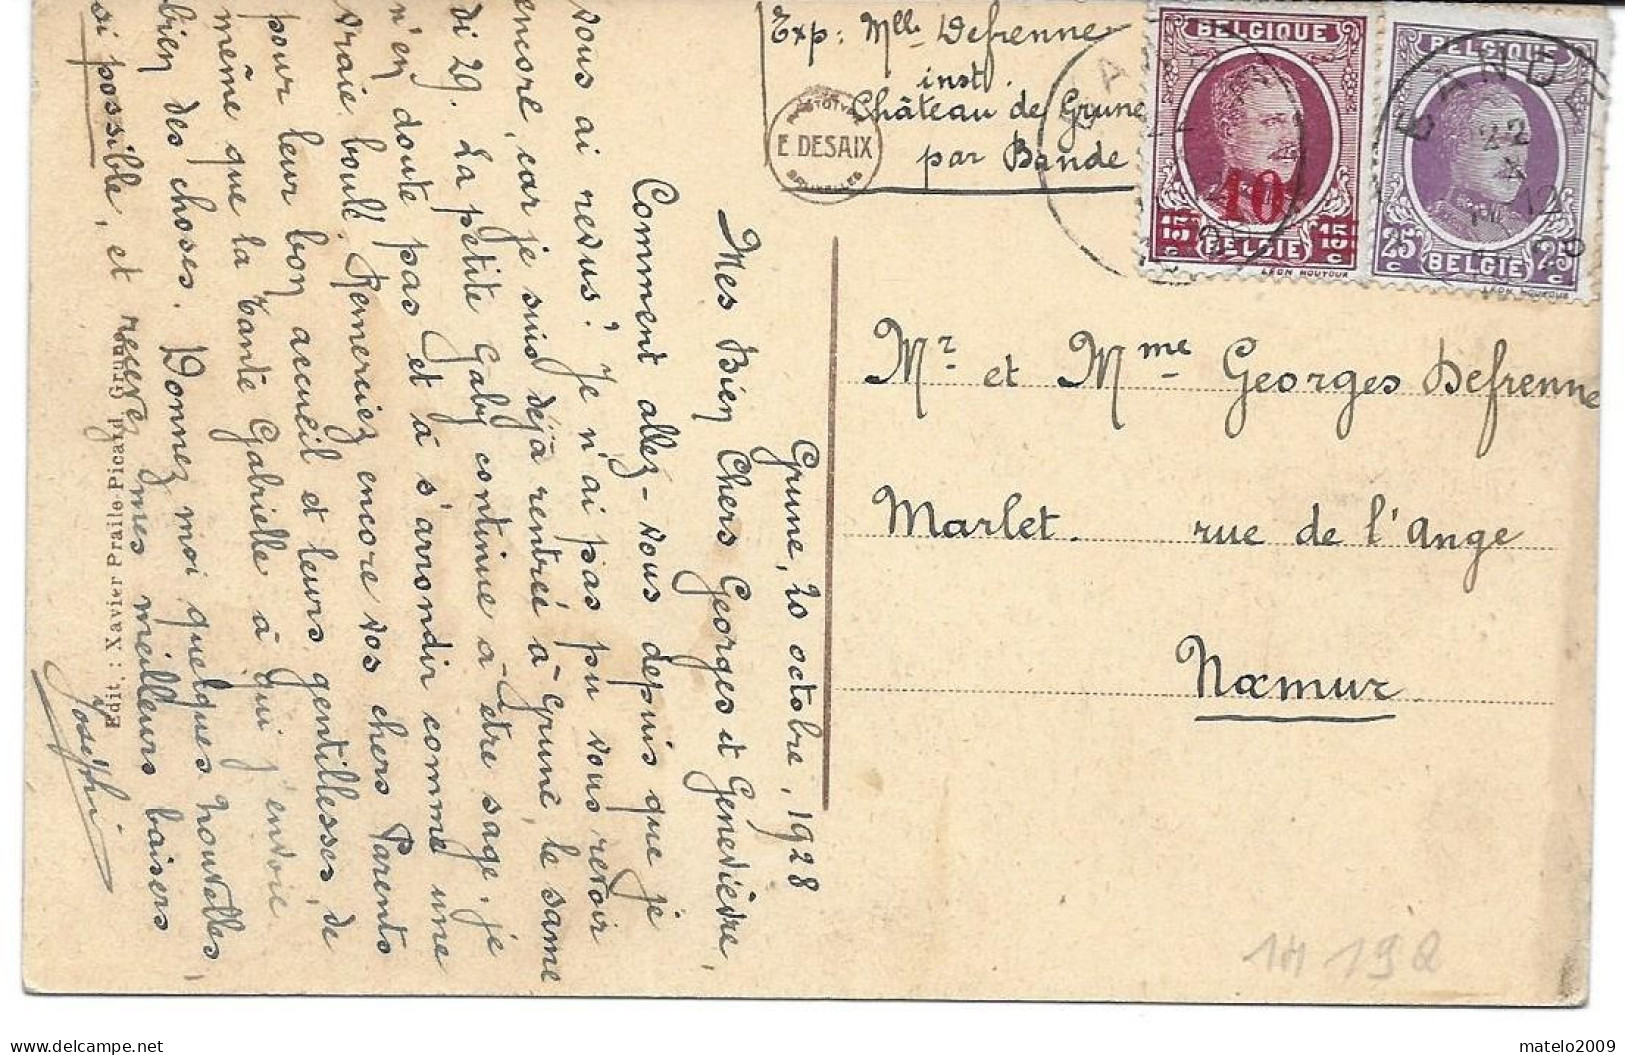 Grune, 20 octobre, 1928
Mes Bien Chers Georges et Geneviève,
Comment allez-vous depuis que je
vous ai revus? Je n'ai pas pu vous revoir
encore, car je suis déjà rentrée à Grune, le same
di 29. La petite Gaby continue à être sage, je
n'en doute pas et à s'arrondir comme une
vraie boule. Remerciez encore vos chers Parents
pour leur bon accueil et leurs gentillesses, de
même que la Tante Gabrielle à qui j'envoie
bien des choses. Donnez moi quelques nouvelles,
si possible, et recevez mes meilleurs baisers
Edit. : Xavier Praile-Picard Grune
Exp: Mlle Defrenne
inst.
Château de Grune
par Bande
PHOTOTYPIE
E. DESAIX
BRUXELLES
BELGIQUE
10
15 15
c BELGIE c
LÉON HOUYOUX
BELGIQUE
25 25
c BELGIE c
LÉON HOUYOUX
BANDE
22
X
12
28
Mr et Mme Georges Defrenne
Marlet. rue de l'Ange
Namur
matelo2009